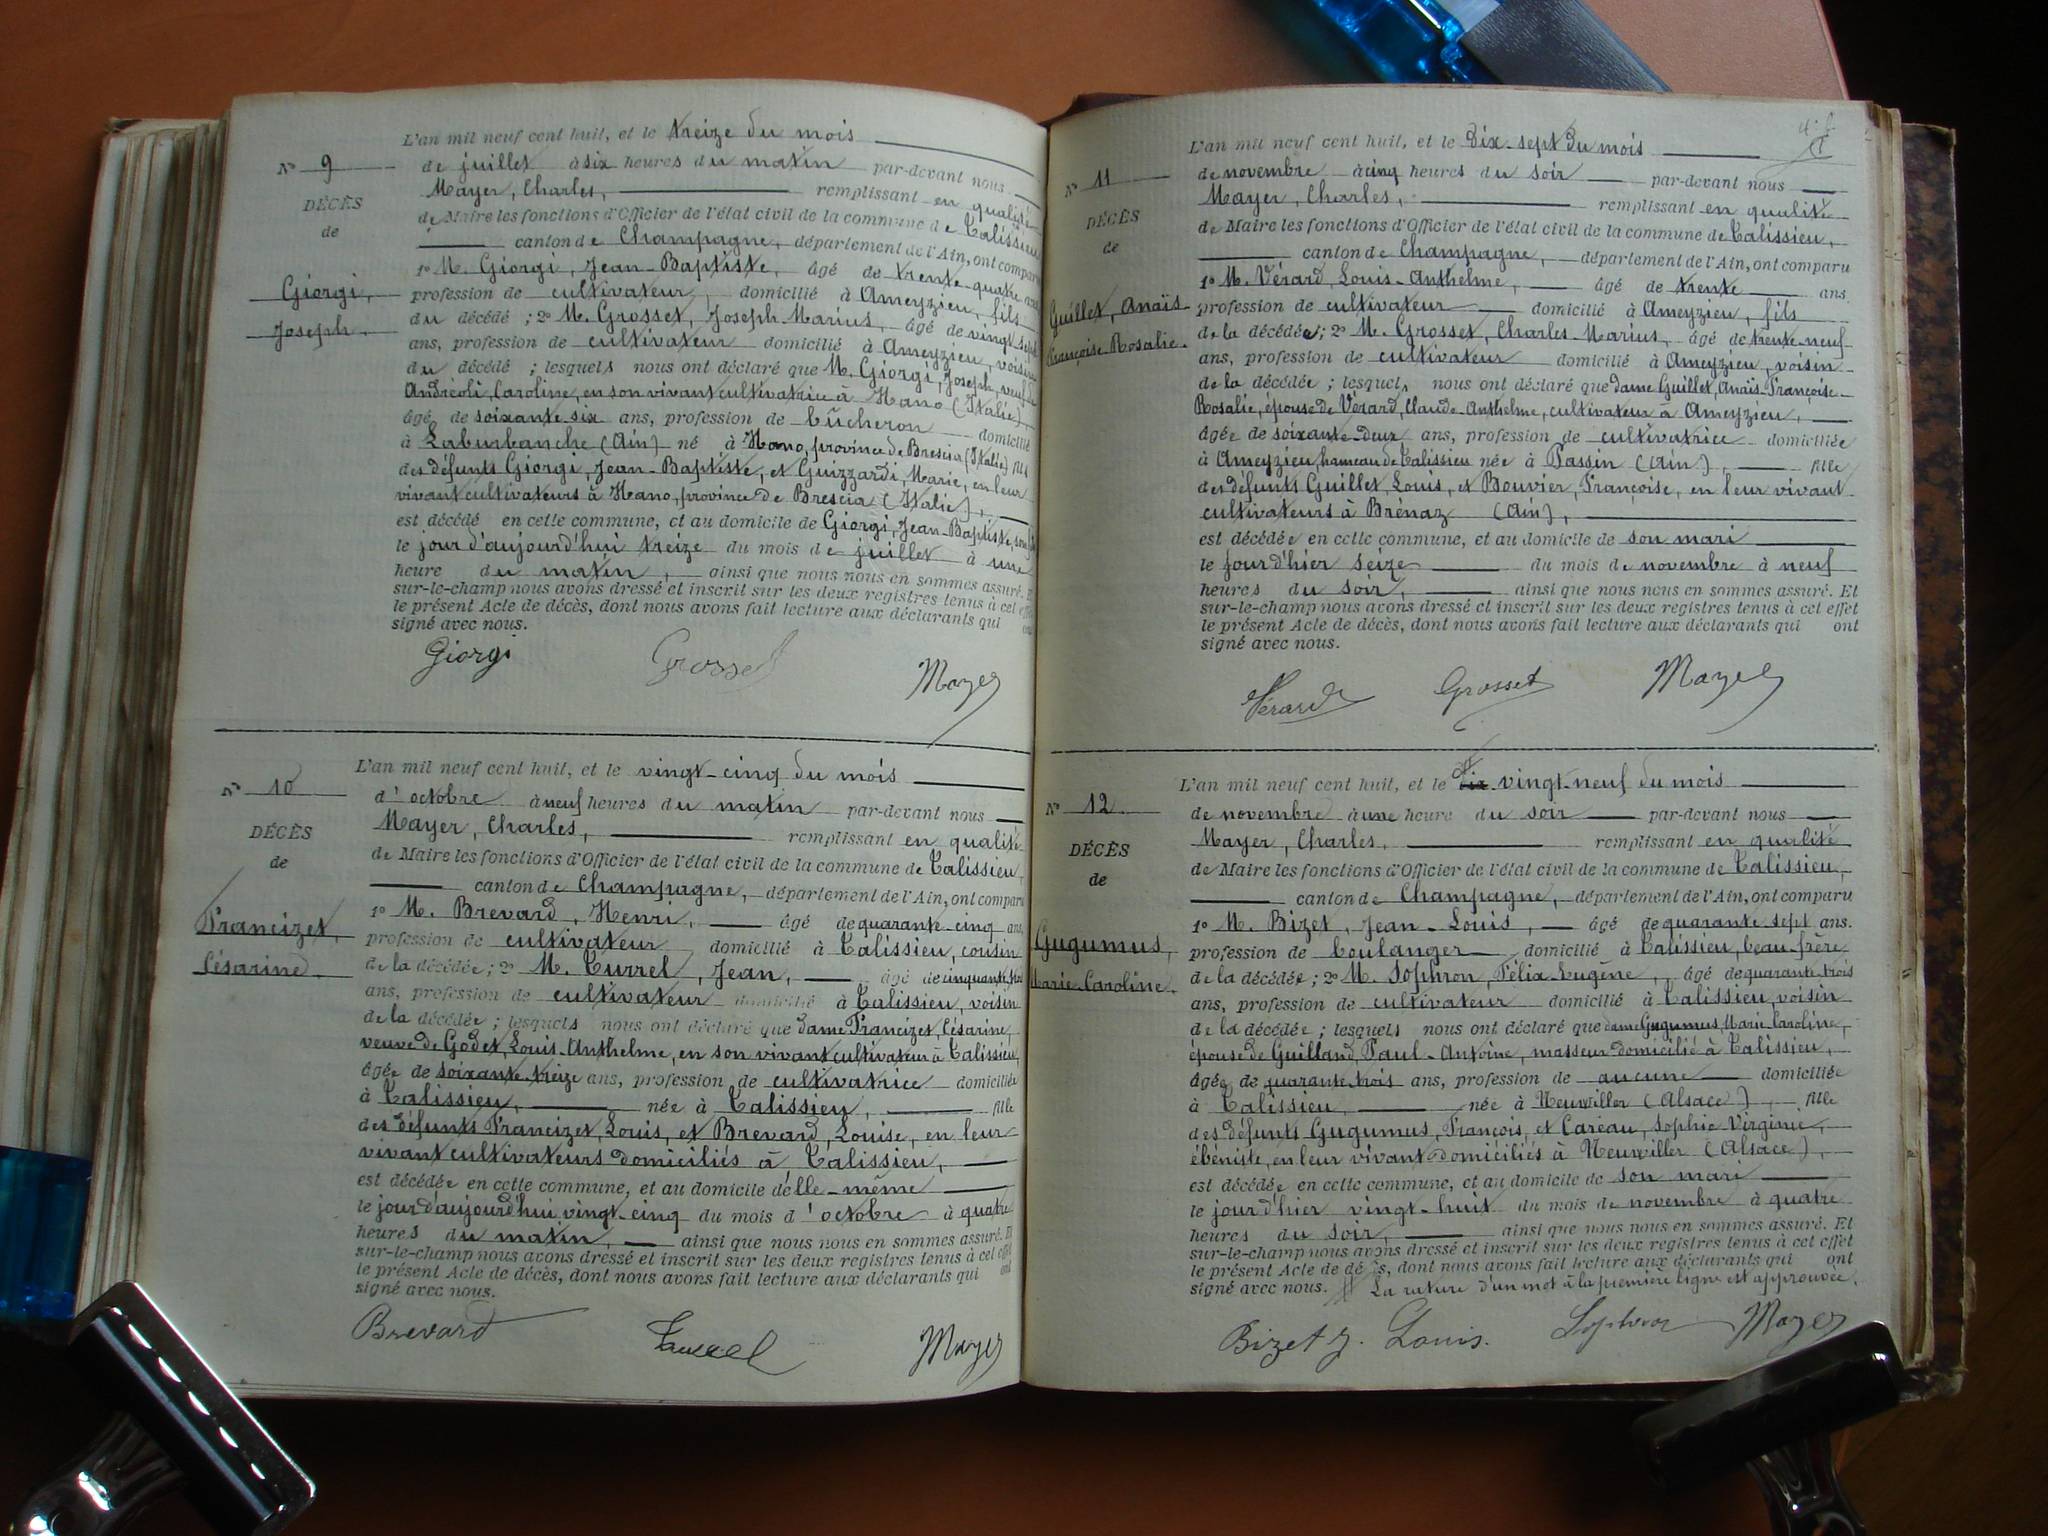 L'an mil neuf cent huit, et le treize du mois
N° 9
de juillet à six heures du matin par-devant nous
Mayer, Charles, remplissant en qualité
DÉCÈS
de Maire les fonctions d'Officier de l'état civil de la commune de Talissieu
de
canton de Champagne, département de l'Ain, ont comparu
1° M. Giorgi, Jean-Baptiste, âgé de trente-quatre ans
Giorgi,
profession de cultivateur, domicilié à Ameyzieu, fils
Joseph.
du décédé ; 2° M. Grosset, Joseph-Marius, âgé de vingt-sept
ans, profession de cultivateur domicilié à Ameyzieu, voisin
du décédé ; lesquels nous ont déclaré que M. Giorgi, Joseph, veuf de
Andréoli, Caroline, en son vivant cultivatrice à Hano (Italie),
âgé de soixante-six ans, profession de bûcheron domicilié
à Laburbanche (Ain) né à Hano, province de Brescia (Italie) fils
des défunts Giorgi, Jean-Baptiste, et Guizzardi, Marie, en leur
vivant cultivateurs à Hano, province de Brescia (Italie),
est décédé en cette commune, et au domicile de Giorgi, Jean-Baptiste, son fils
le jour d'aujourd'hui treize du mois de juillet à une
heure du matin, ainsi que nous nous en sommes assuré. Et
sur-le-champ nous avons dressé et inscrit sur les deux registres tenus à cet effet
le présent Acte de décès, dont nous avons fait lecture aux déclarants qui ont
signé avec nous.
Giorgi Grosset Mayer
L'an mil neuf cent huit, et le vingt-cinq du mois
N° 10
d'octobre à neuf heures du matin par-devant nous
Mayer, Charles, remplissant en qualité
DÉCÈS
de Maire les fonctions d'Officier de l'état civil de la commune de Talissieu,
de
canton de Champagne, département de l'Ain, ont comparu
1° M. Brevard, Henri, âgé de quarante-cinq ans,
Francizet,
profession de cultivateur domicilié à Talissieu, cousin
Césarine.
de la décédée ; 2° M. Turrel, Jean, âgé de cinquante-trois
ans, profession de cultivateur domicilié à Talissieu, voisin
de la décédée ; lesquels nous ont déclaré que dame Francizet, Césarine,
veuve de Godet, Louis-Anthelme, en son vivant cultivateur à Talissieu,
âgée de soixante-treize ans, profession de cultivatrice domiciliée
à Talissieu, née à Talissieu, fille
des défunts Francizet, Louis, et Brevard, Louise, en leur
vivant cultivateurs domiciliés à Talissieu,
est décédée en cette commune, et au domicile d'elle-même
le jour d'aujourd'hui vingt-cinq du mois d'octobre à quatre
heures du matin, ainsi que nous nous en sommes assuré. Et
sur-le-champ nous avons dressé et inscrit sur les deux registres tenus à cet effet
le présent Acte de décès, dont nous avons fait lecture aux déclarants qui ont
signé avec nous.
Brevard Turrel Mayer
L'an mil neuf cent huit, et le dix-sept du mois
N° 11
de novembre à cinq heures du soir par-devant nous
Mayer, Charles, remplissant en qualité
DÉCÈS
de Maire les fonctions d'Officier de l'état civil de la commune de Talissieu,
de
canton de Champagne, département de l'Ain, ont comparu
1° M. Vérard, Louis-Anthelme, âgé de trente ans.
Guillet, Anaïs-
profession de cultivateur domicilié à Ameyzieu, fils
Françoise-Rosalie.
de la décédée ; 2° M. Grosset, Charles-Marius, âgé de trente-neuf
ans, profession de cultivateur domicilié à Ameyzieu, voisin
de la décédée ; lesquels nous ont déclaré que dame Guillet, Anaïs-Françoise-
Rosalie, épouse de Vérard, Claude-Anthelme, cultivateur à Ameyzieu,
âgée de soixante-deux ans, profession de cultivatrice domiciliée
à Ameyzieu, hameau de Talissieu née à Passin (Ain), fille
des défunts Guillet, Louis, et Bouvier, Françoise, en leur vivant
cultivateurs à Brénaz (Ain),
est décédée en cette commune, et au domicile de son mari
le jour d'hier seize du mois de novembre à neuf
heures du soir, ainsi que nous nous en sommes assuré. Et
sur-le-champ nous avons dressé et inscrit sur les deux registres tenus à cet effet
le présent Acte de décès, dont nous avons fait lecture aux déclarants qui ont
signé avec nous.
Vérard Grosset Mayer
L'an mil neuf cent huit, et le vingt-neuf du mois
N° 12
de novembre à une heure du soir par-devant nous
Mayer, Charles, remplissant en qualité
DÉCÈS
de Maire les fonctions d'Officier de l'état civil de la commune de Talissieu,
de
canton de Champagne, département de l'Ain, ont comparu
1° M. Bizet, Jean-Louis, âgé de quarante-sept ans.
Gugumus,
profession de boulanger domicilié à Talissieu, beau-frère
Marie-Caroline.
de la décédée ; 2° M. Sophron, Félix-Eugène, âgé de quarante-trois
ans, profession de cultivateur domicilié à Talissieu, voisin
de la décédée ; lesquels nous ont déclaré que dame Gugumus, Marie-Caroline,
épouse de Guilland, Paul-Antoine, masseur domicilié à Talissieu,
âgée de quarante-trois ans, profession de aucune domiciliée
à Talissieu, née à Neuwiller (Alsace), fille
des défunts Gugumus, François, et Careau, Sophie-Virginie,
ébéniste, en leur vivant domiciliés à Neuwiller (Alsace),
est décédée en cette commune, et au domicile de son mari
le jour d'hier vingt-huit du mois de novembre à quatre
heures du soir, ainsi que nous nous en sommes assuré. Et
sur-le-champ nous avons dressé et inscrit sur les deux registres tenus à cet effet
le présent Acte de décès, dont nous avons fait lecture aux déclarants qui ont
signé avec nous. La rature d'un mot à la première ligne est approuvée.
Bizet J. Louis. Sophron Mayer